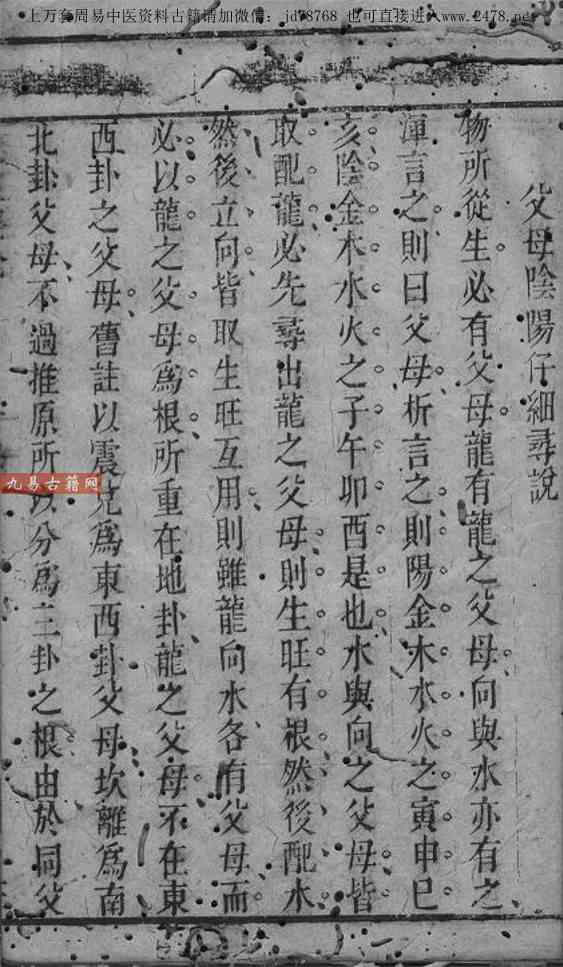 上万套周易中医资料古籍请加微信：jd78768 也可直接进入www.2478.net
父母陰陽仔細尋說
物所從生必有父母龍有龍之父母向與水亦有之
渾言之則曰父母析言之則陽金木水火之寅申巳
亥陰金木水火之子午卯酉是也水與向之父母皆
取配龍必先尋出龍之父母則生旺有根然後配水
然後立向皆取生旺互用則雖龍向水各有父母而
必以龍之父母爲根所重在地卦龍之父母不在東
西卦之父母舊註以震兌爲東西卦父母坎離爲南
北卦父母不過推原所以分爲三卦之根由於同父
九易古籍网